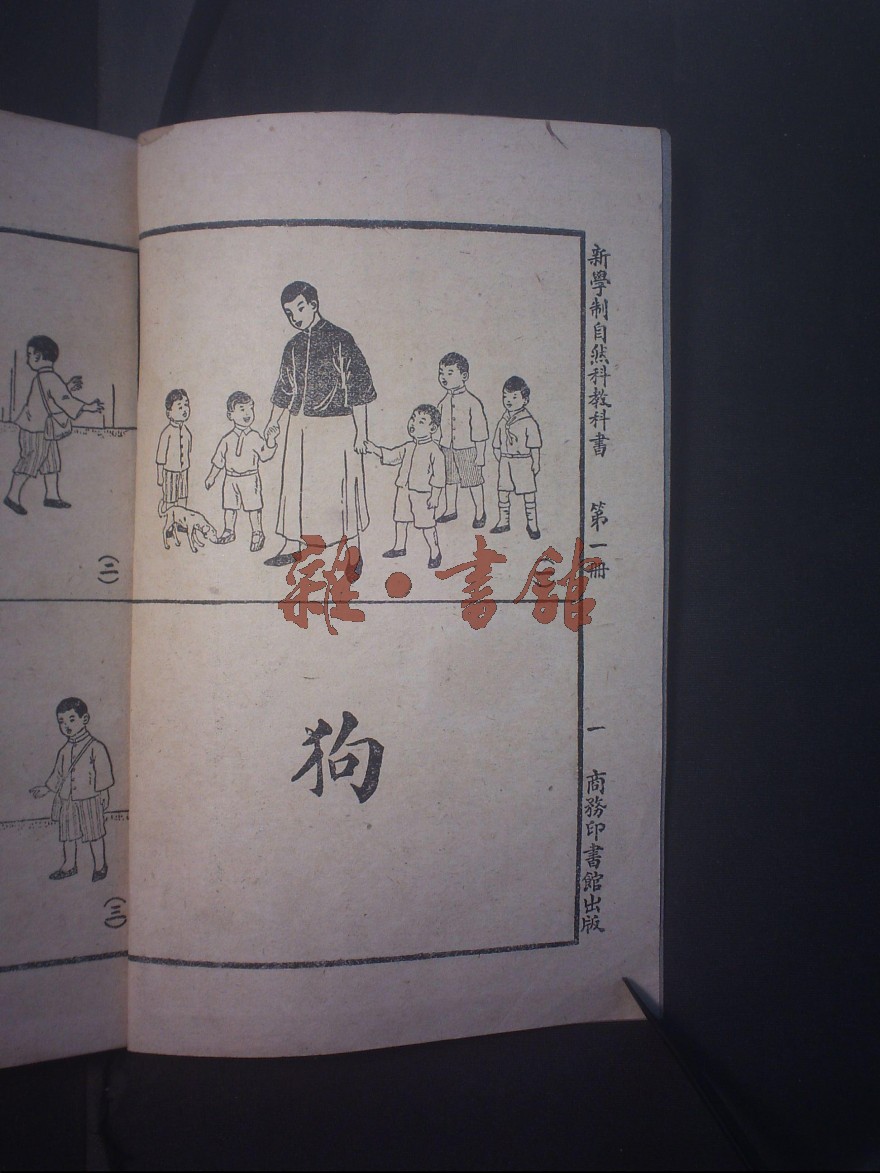 新學制自然科教科書 第一冊 一 商務印書館出版
狗
(二)
(三)
雜·書館